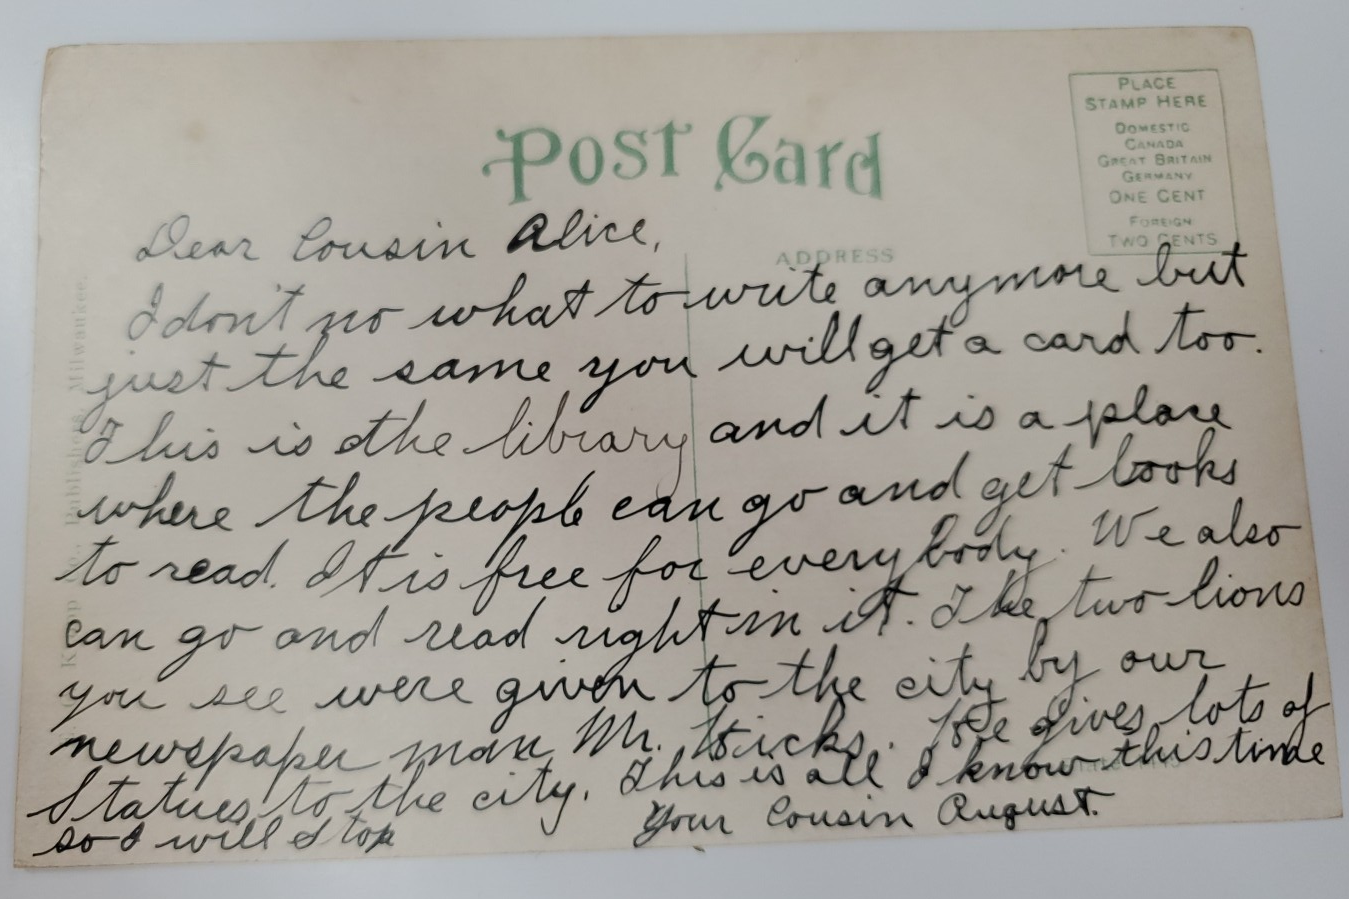 Post Card
PLACE
STAMP HERE
DOMESTIC
CANADA
GREAT BRITAIN
GERMANY
ONE CENT
FOREIGN
TWO CENTS
ADDRESS
Dear Cousin Alice,
I don't no what to write anymore but
just the same you will get a card too.
This is the library and it is a place
where the people can go and get books
to read. It is free for every body. We also
can go and read right in it. The two lions
you see were given to the city by our
newspaper man Mr. Hicks. He gives lots of
Statues to the city. This is all I know this time
so I will stop
Your Cousin August.
Publishers, Milwaukee.